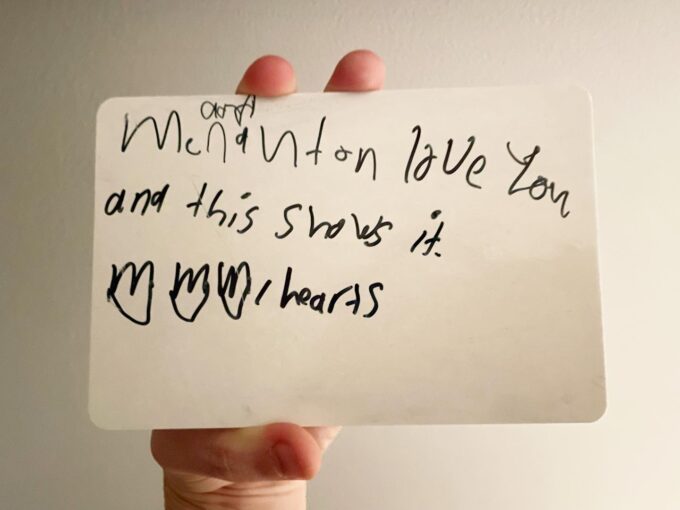 and
Me n aNton love You
and this shows it.
/hearts